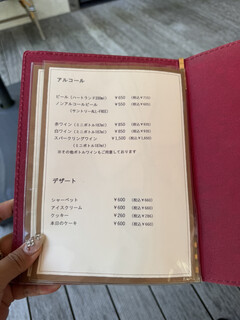 アルコール
ビール (ハートランド500ml) ￥650 (税込￥715)
ノンアルコールビール ￥550 (税込￥605)
(サントリーALL-FREE)
赤ワイン (ミニボトル187ml) ￥850 (税込￥935)
白ワイン (ミニボトル187ml) ￥850 (税込￥935)
スパークリングワイン ￥1,500 (税込￥1,650)
(ミニボトル187ml)
※その他ボトルワインもご用意しております
デザート
シャーベット ￥600 (税込￥660)
アイスクリーム ￥600 (税込￥660)
クッキー ￥260 (税込￥286)
本日のケーキ ￥600 (税込￥660)